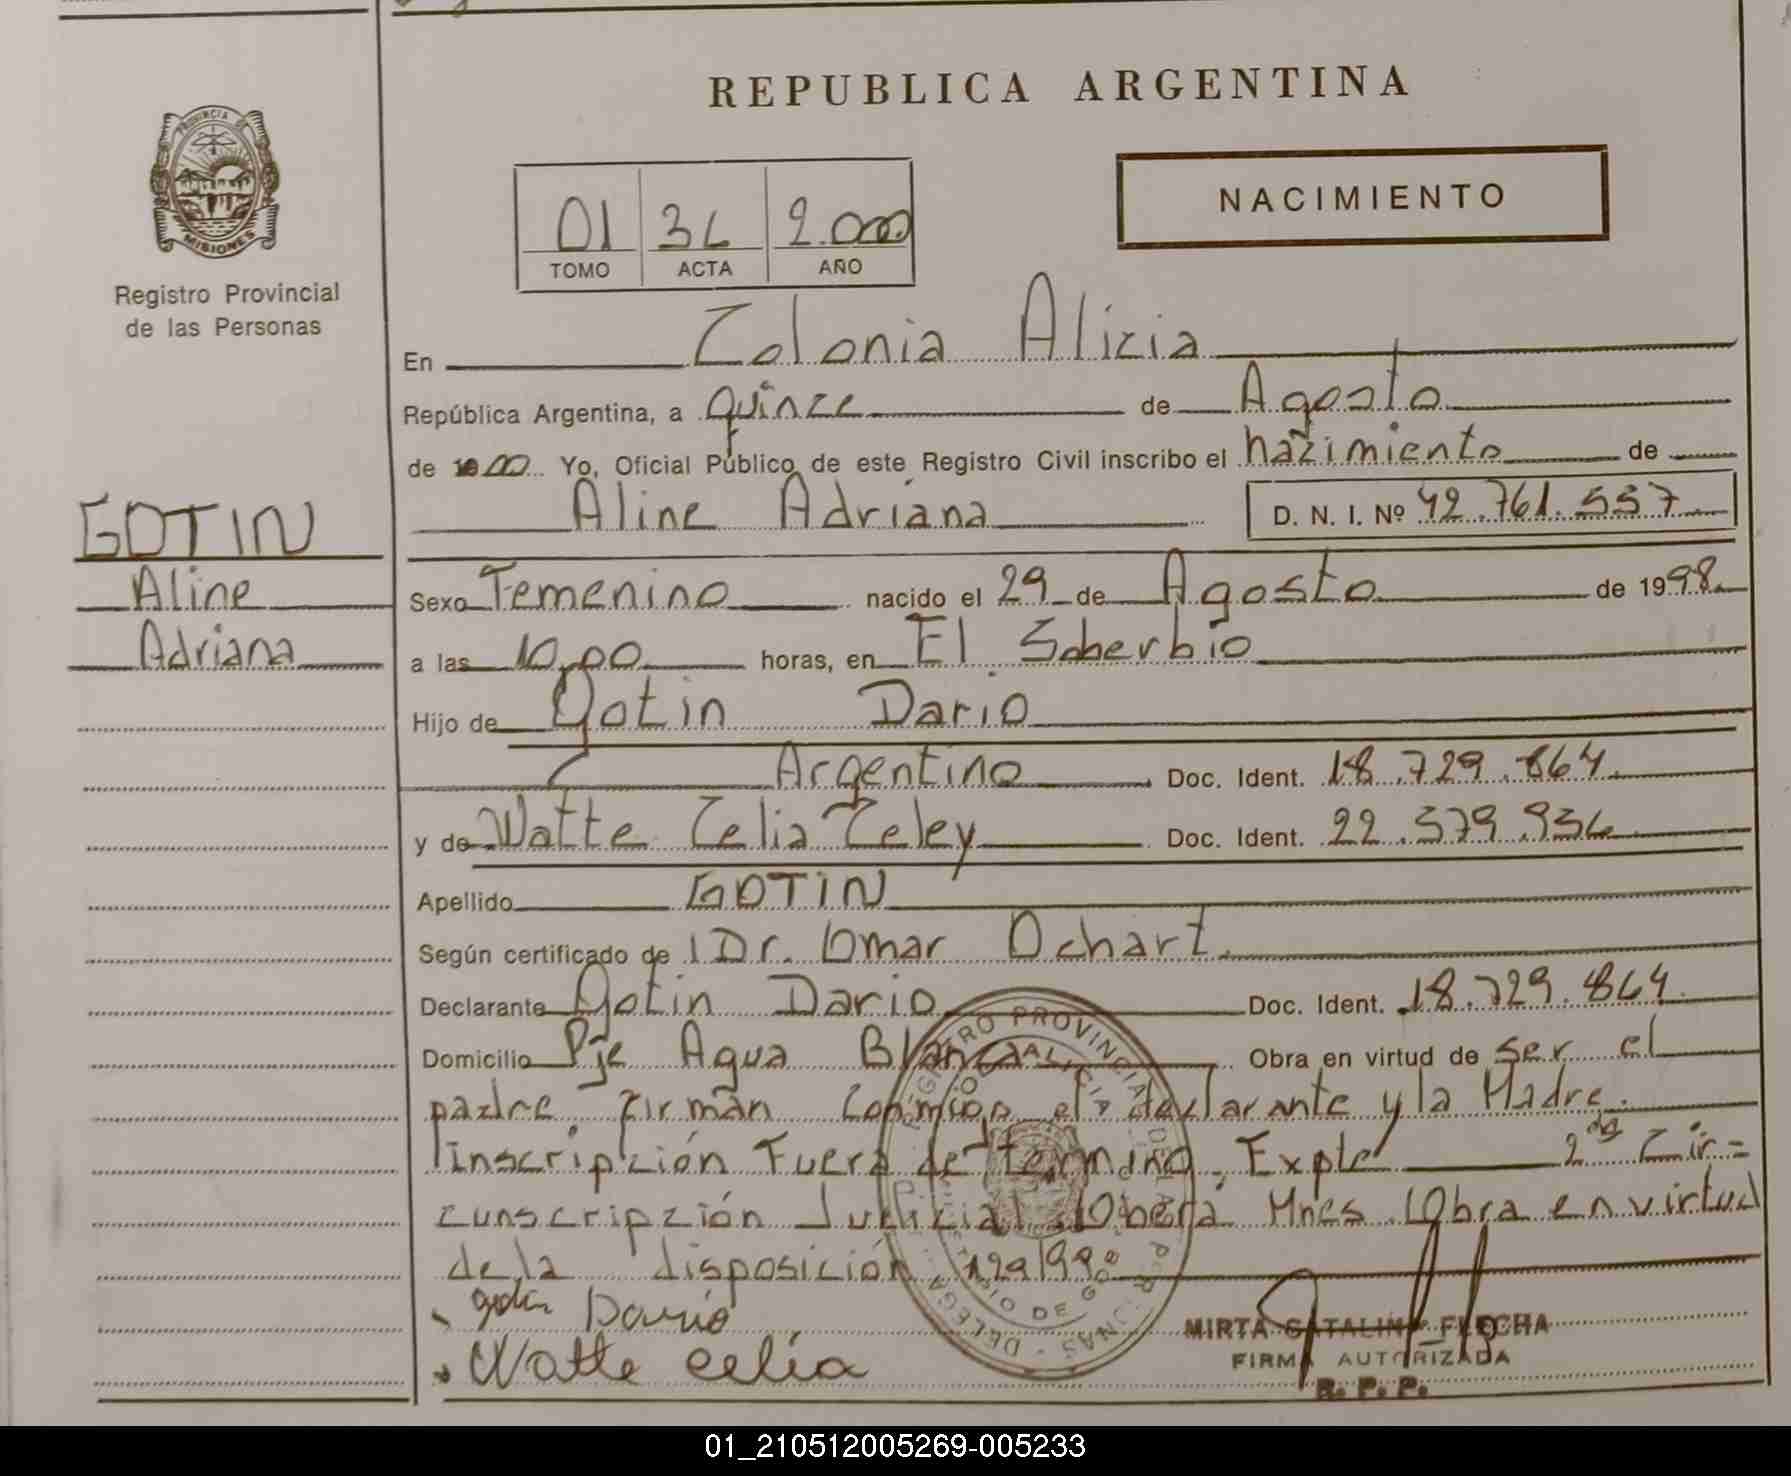 REPUBLICA ARGENTINA
PROVINCIA DE
MISIONES
Registro Provincial
de las Personas
NACIMIENTO
01 36 2.000
TOMO ACTA AÑO
En Colonia Alicia
República Argentina, a quince de Agosto
de 00 Yo, Oficial Público de este Registro Civil inscribo el nacimiento de
Aline Adriana D. N. I. Nº 42.761.557
GOTIN
Aline
Adriana
Sexo Femenino nacido el 29 de Agosto de 1998
a las 10,00 horas, en El Soberbio
Hijo de Gotin Dario
Argentino Doc. Ident. 18.729.864
y de Watte Celia Celey Doc. Ident. 22.579.936
Apellido GOTIN
Según certificado de Dr. Omar Ochart
Declarante Gotin Dario Doc. Ident. 18.729.864
Domicilio Pje Agua Blanca Obra en virtud de ser el
padre Firman Conmigo el declarante y la Madre.
Inscripción Fuera de Termino, Expte 2da Cir=
cunscripción Judicial Oberá Mnes. Obra en virtud
de la disposición 129/99
Dario
Watte Celia
MIRTA CATALINA FLECHA
FIRMA AUTORIZADA
R. P. P.
01_210512005269-005233